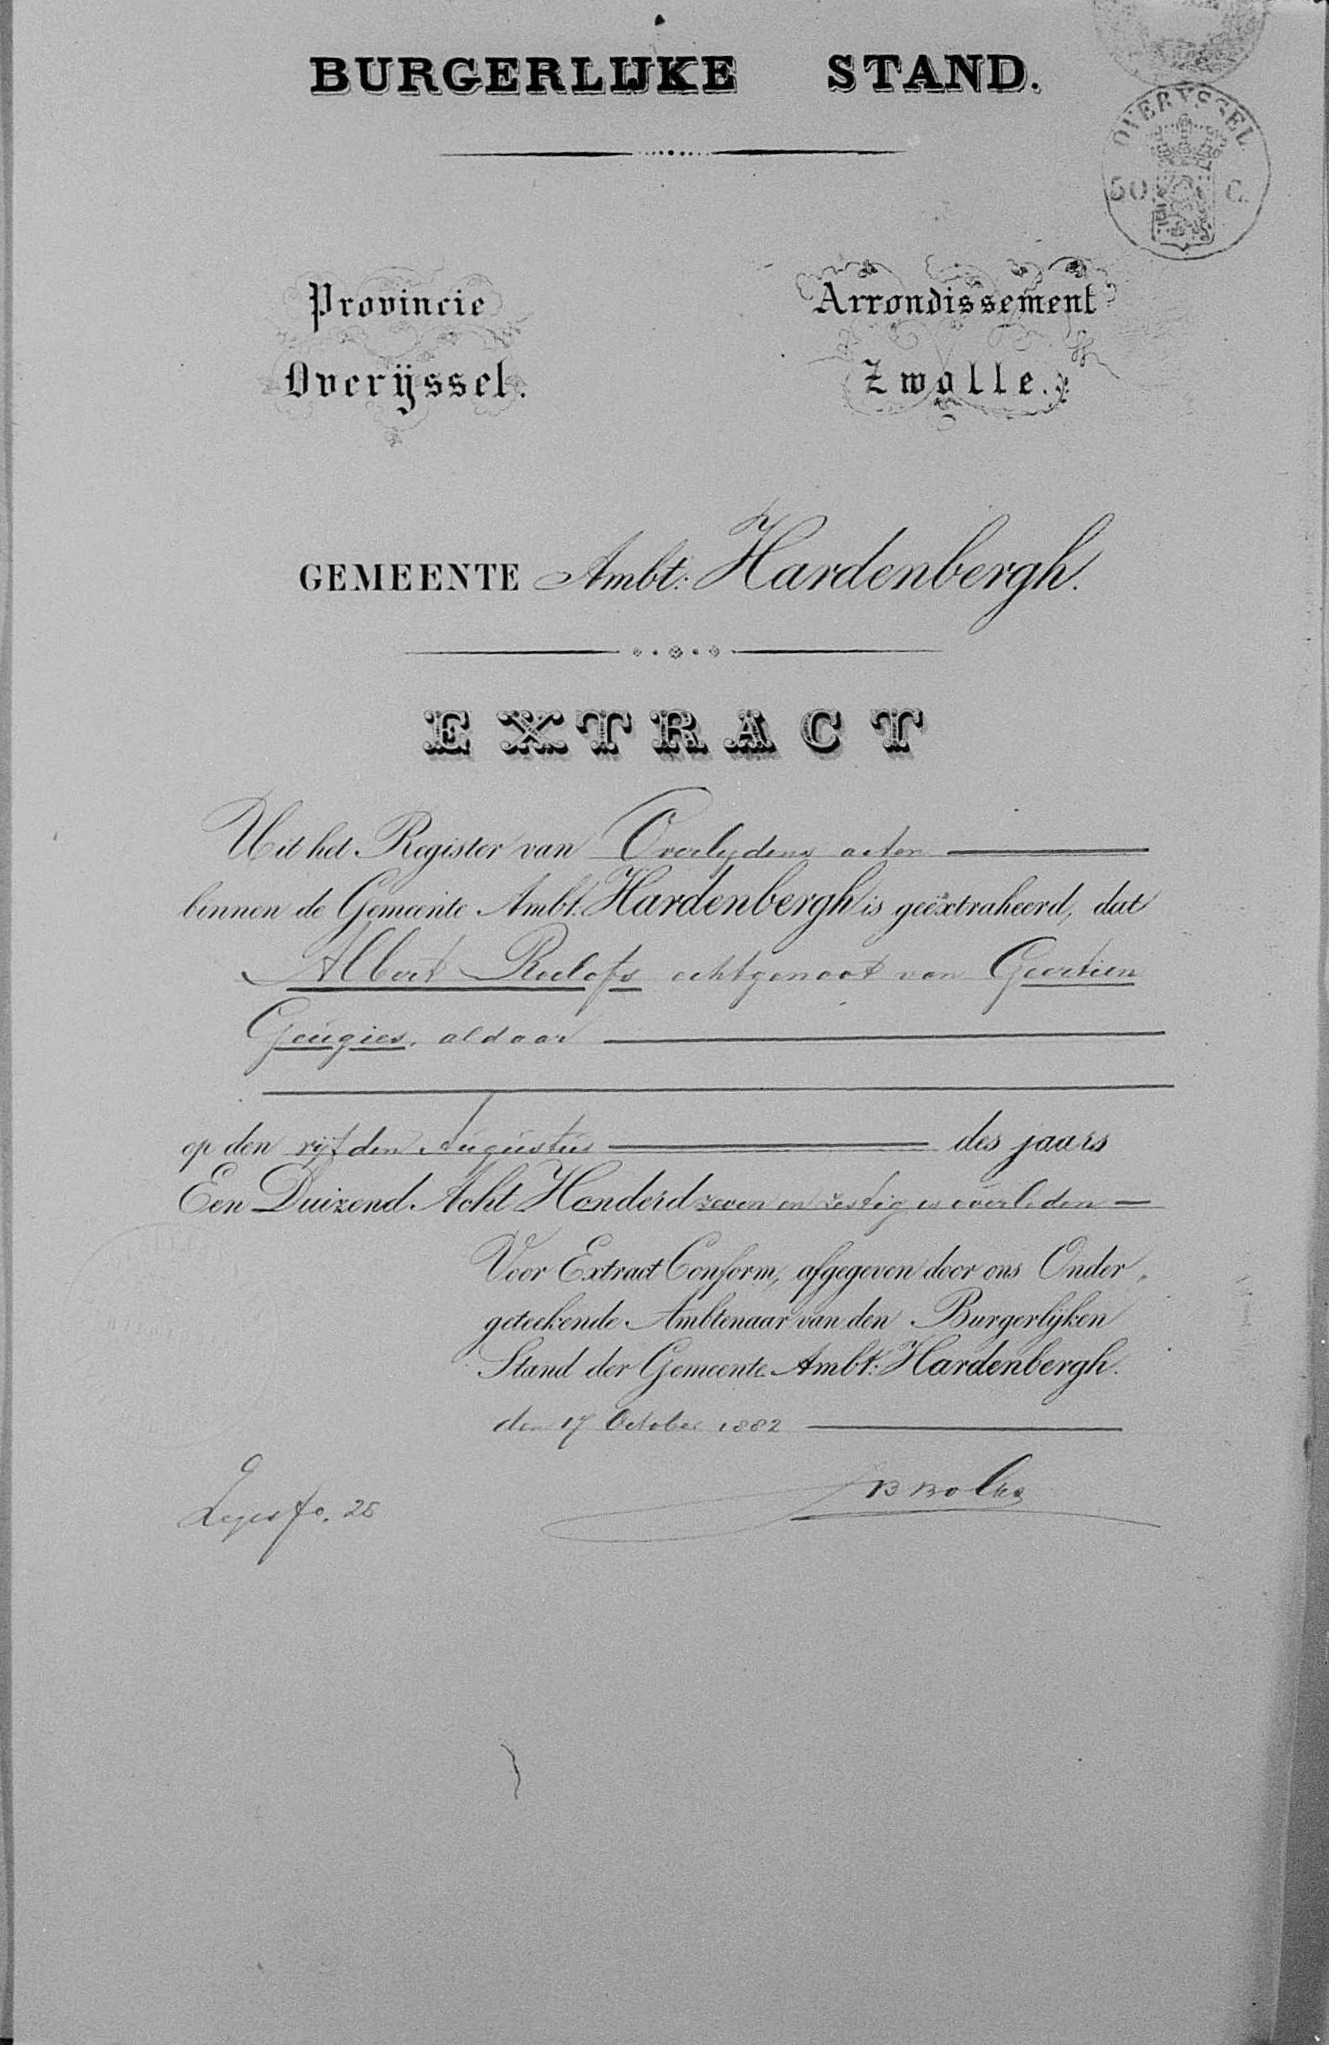 BURGERLIJKE STAND.
OVERYSSEL
50 C.
Provincie
Overijssel.
Arrondissement
Zwolle.
GEMEENTE Ambt: Hardenbergh.
EXTRACT
Uit het Register van Overlydens acten
binnen de Gemeente Ambt: Hardenbergh is geëxtraheerd, dat
Albert Roelofs echtgenoot van Geertien
Geugies, aldaar
op den vijfden Augustus des jaars
Een Duizend Acht Honderd zeven en zestig is overleden
Voor Extract Conform, afgegeven door ons Onder„
geteekende Ambtenaar van den Burgerlijken
Stand der Gemeente Ambt: Hardenbergh.
den 17 October 1882
Leges fo. 25